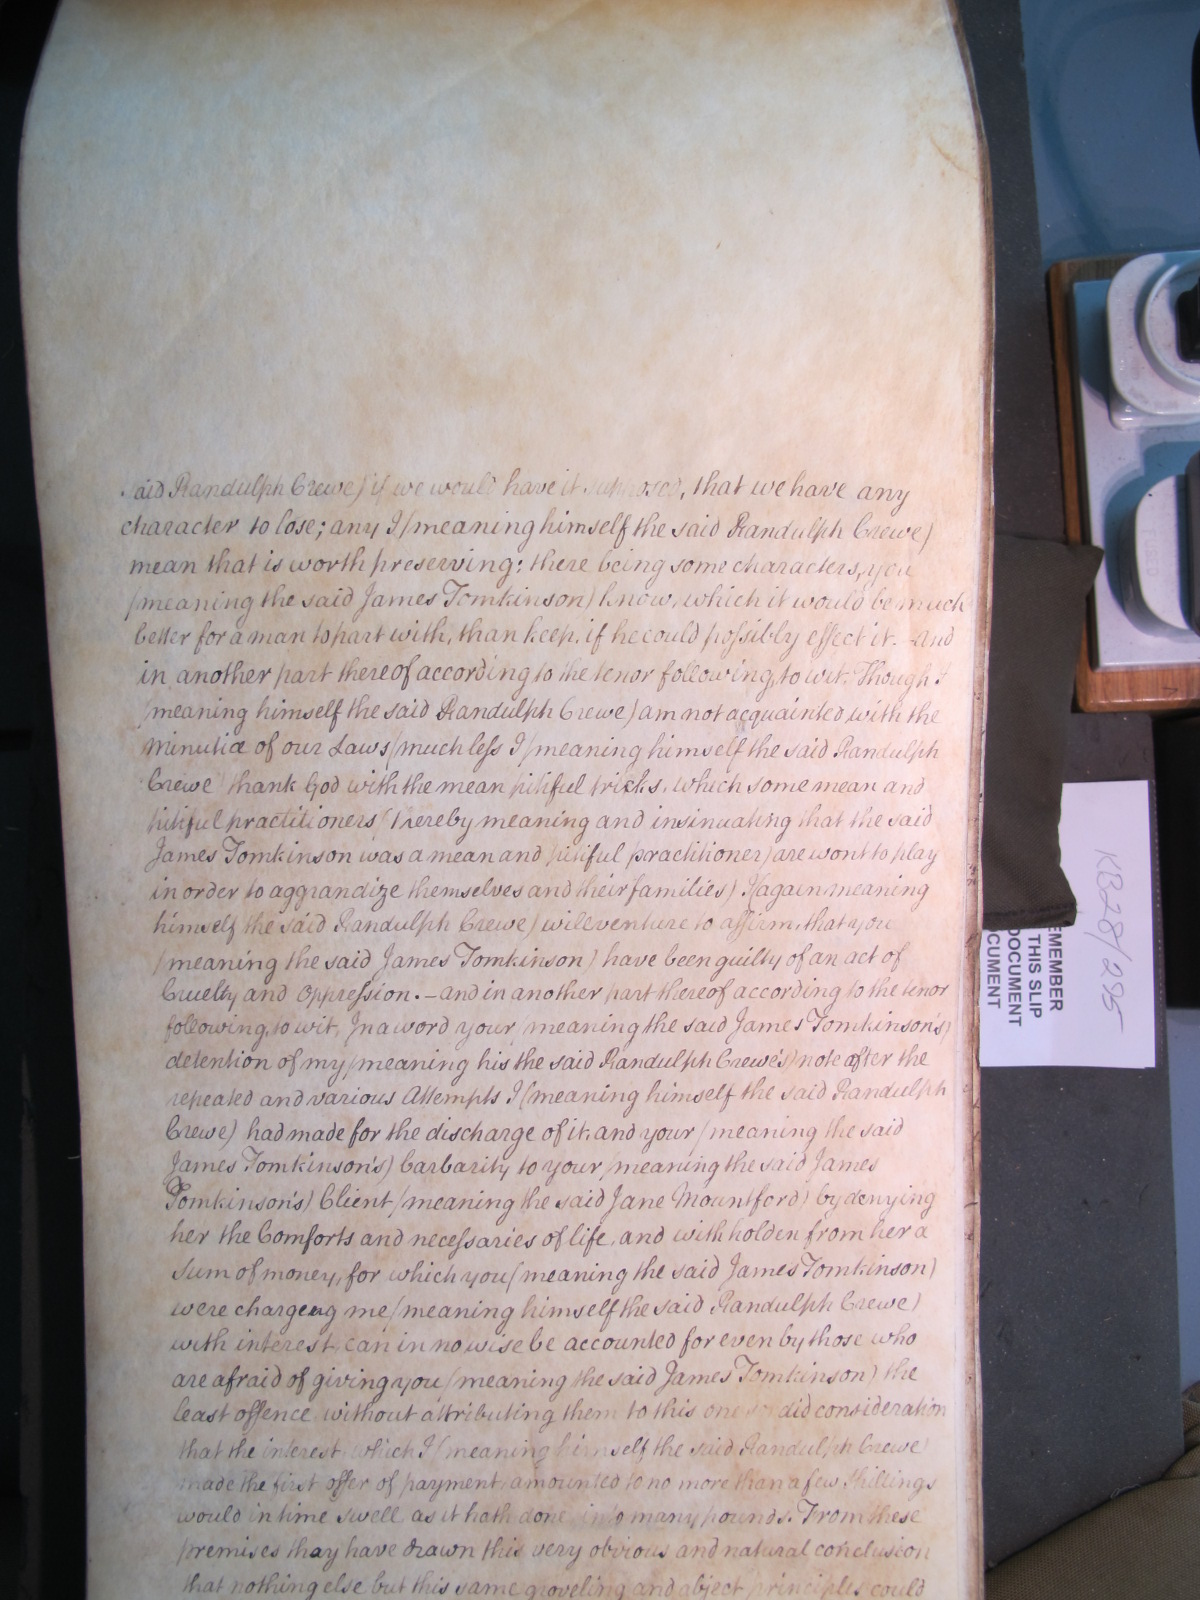 said Randulph Crewe) if we would have it supposed, that we have any
character to lose; any I (meaning himself the said Randulph Crewe)
mean that is worth preserving: there being some characters, you
(meaning the said James Tomkinson) know, which it would be much
better for a man to part with, than keep, if he could possibly effect it. - and
in another part thereof according to the tenor following, to wit. Though I
(meaning himself the said Randulph Crewe) am not acquainted with the
Minutiæ of our Laws (much less I (meaning himself the said Randulph
Crewe) thank God with the mean pitiful tricks, which some mean and
pitiful practitioners (thereby meaning and insinuating that the said
James Tomkinson was a mean and pitiful practitioner) are wont to play
in order to aggrandize themselves and their families) I (again meaning
himself the said Randulph Crewe) will venture to affirm, that you
(meaning the said James Tomkinson) have been guilty of an act of
Cruelty and Oppression. - and in another part thereof according to the tenor
following, to wit, In a word your (meaning the said James Tomkinson's)
detention of my (meaning his the said Randulph Crewe's) note after the
repeated and various Attempts I (meaning himself the said Randulph
Crewe) had made for the discharge of it, and your (meaning the said
James Tomkinson's) barbarity to your (meaning the said James
Tomkinson's) Client (meaning the said Jane Mountford) by denying
her the Comforts and necessaries of life, and withholden from her a
Sum of money, for which you (meaning the said James Tomkinson)
were chargeing me (meaning himself the said Randulph Crewe)
with interest, can in no wise be accounted for even by those who
are afraid of giving you (meaning the said James Tomkinson) the
least offence without attributing them to this one sordid consideration
that the interest, which I (meaning himself the said Randulph Crewe)
made the first offer of payment, amounted to no more than a few Shillings
would in time swell as it hath done into many pounds. From these
premises they have drawn this very obvious and natural conclusion
that nothing else but this same groveling and abject principles could
KB28/295
EMEMBER
THIS SLIP
DOCUMENT
CUMENT